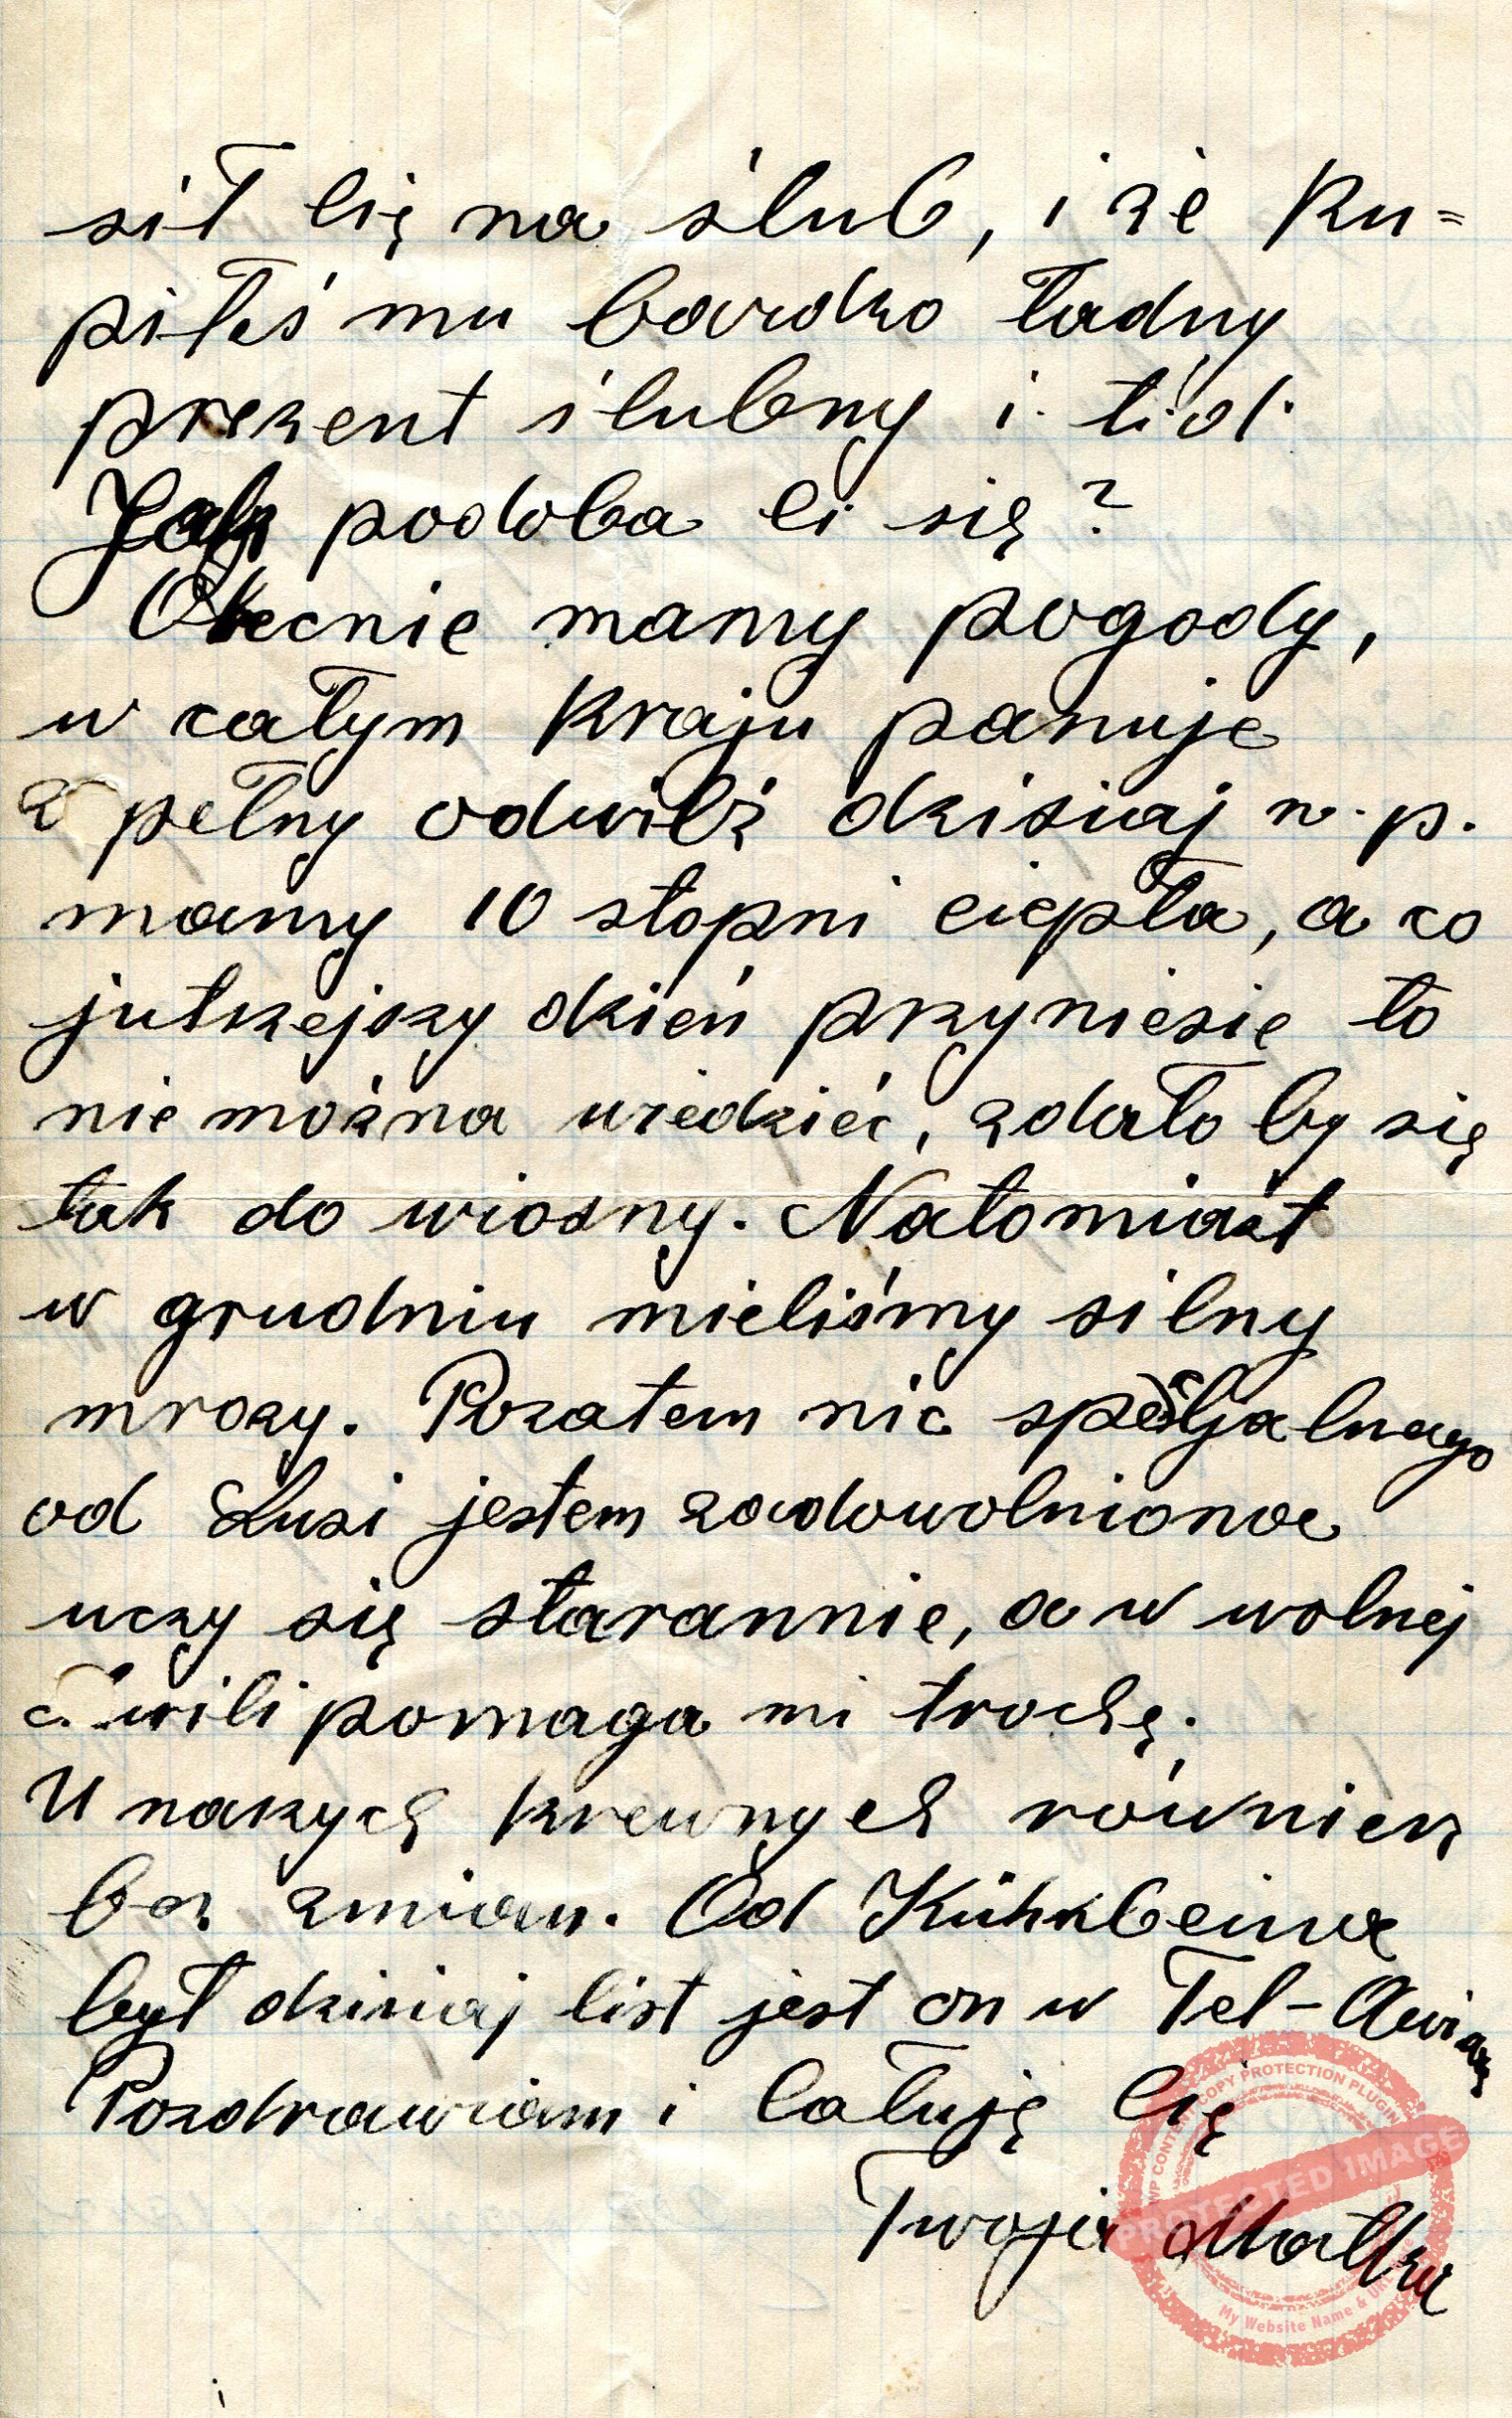 sił Cię na ślub, i że ku=
piłeś mu bardzo ładny
prezent ślubny i t.d.
Jak podoba Ci się?
Obecnie mamy pogody,
w całym kraju panuje
zupełny odwilż dzisiaj n. p.
mamy 10 stopni ciepła, a co
jutrzejszy dzień przyniesie to
nie można wiedzieć, zdało by się
tak do wiosny. Natomiast
w grudniu mieliśmy silny
mrozy. Pozatem nic specjalnego
od Lusi jestem zadowolniona
uczy się starannie, a w wolnej
chwili pomaga mi trochę.
U naszych krewnych również
bez zmian. Od Kühnbeina
był dzisiaj list jest on w Tel-Awiwie
Pozdrawiam i Całuję Cię
Twoja Matka
WP CONTENT COPY PROTECTION PLUGIN
PROTECTED IMAGE
My Website Name & URL